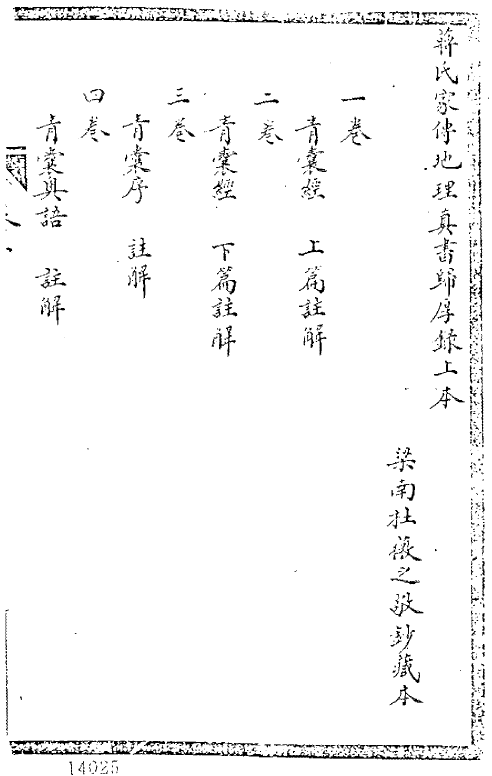 蔣氏家傳地理真書歸厚錄上本
梁南杜薇之敬鈔藏本
一卷
青囊經 上篇註解
二卷
青囊經 下篇註解
三卷
青囊序 註解
四卷
青囊奧語 註解
14025